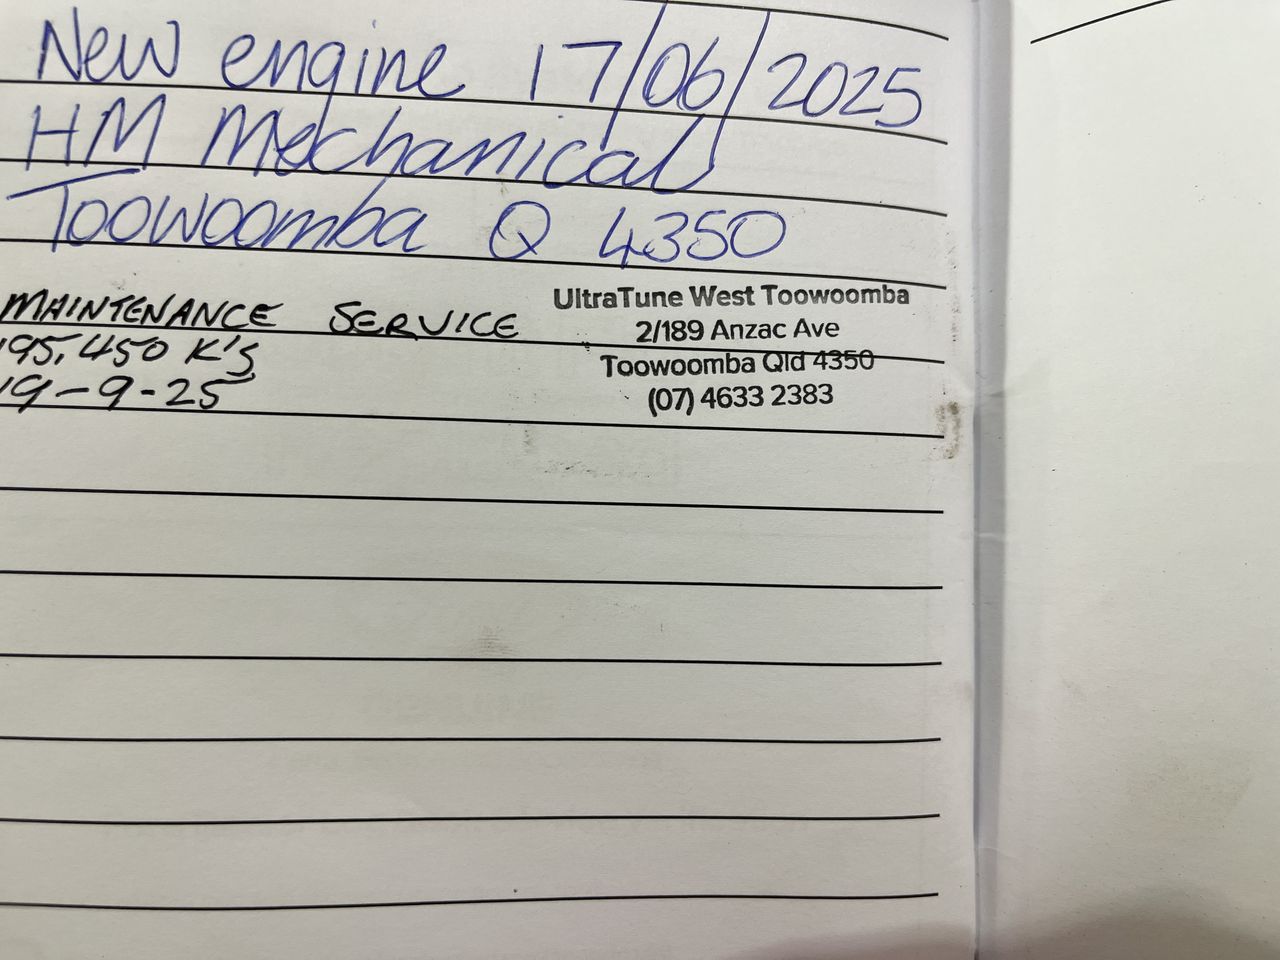 New engine 17/06/2025
HM Mechanical
Toowoomba Q 4350
MAINTENANCE SERVICE
195,450 K's
19-9-25
UltraTune West Toowoomba
2/189 Anzac Ave
Toowoomba Qld 4350
(07) 4633 2383